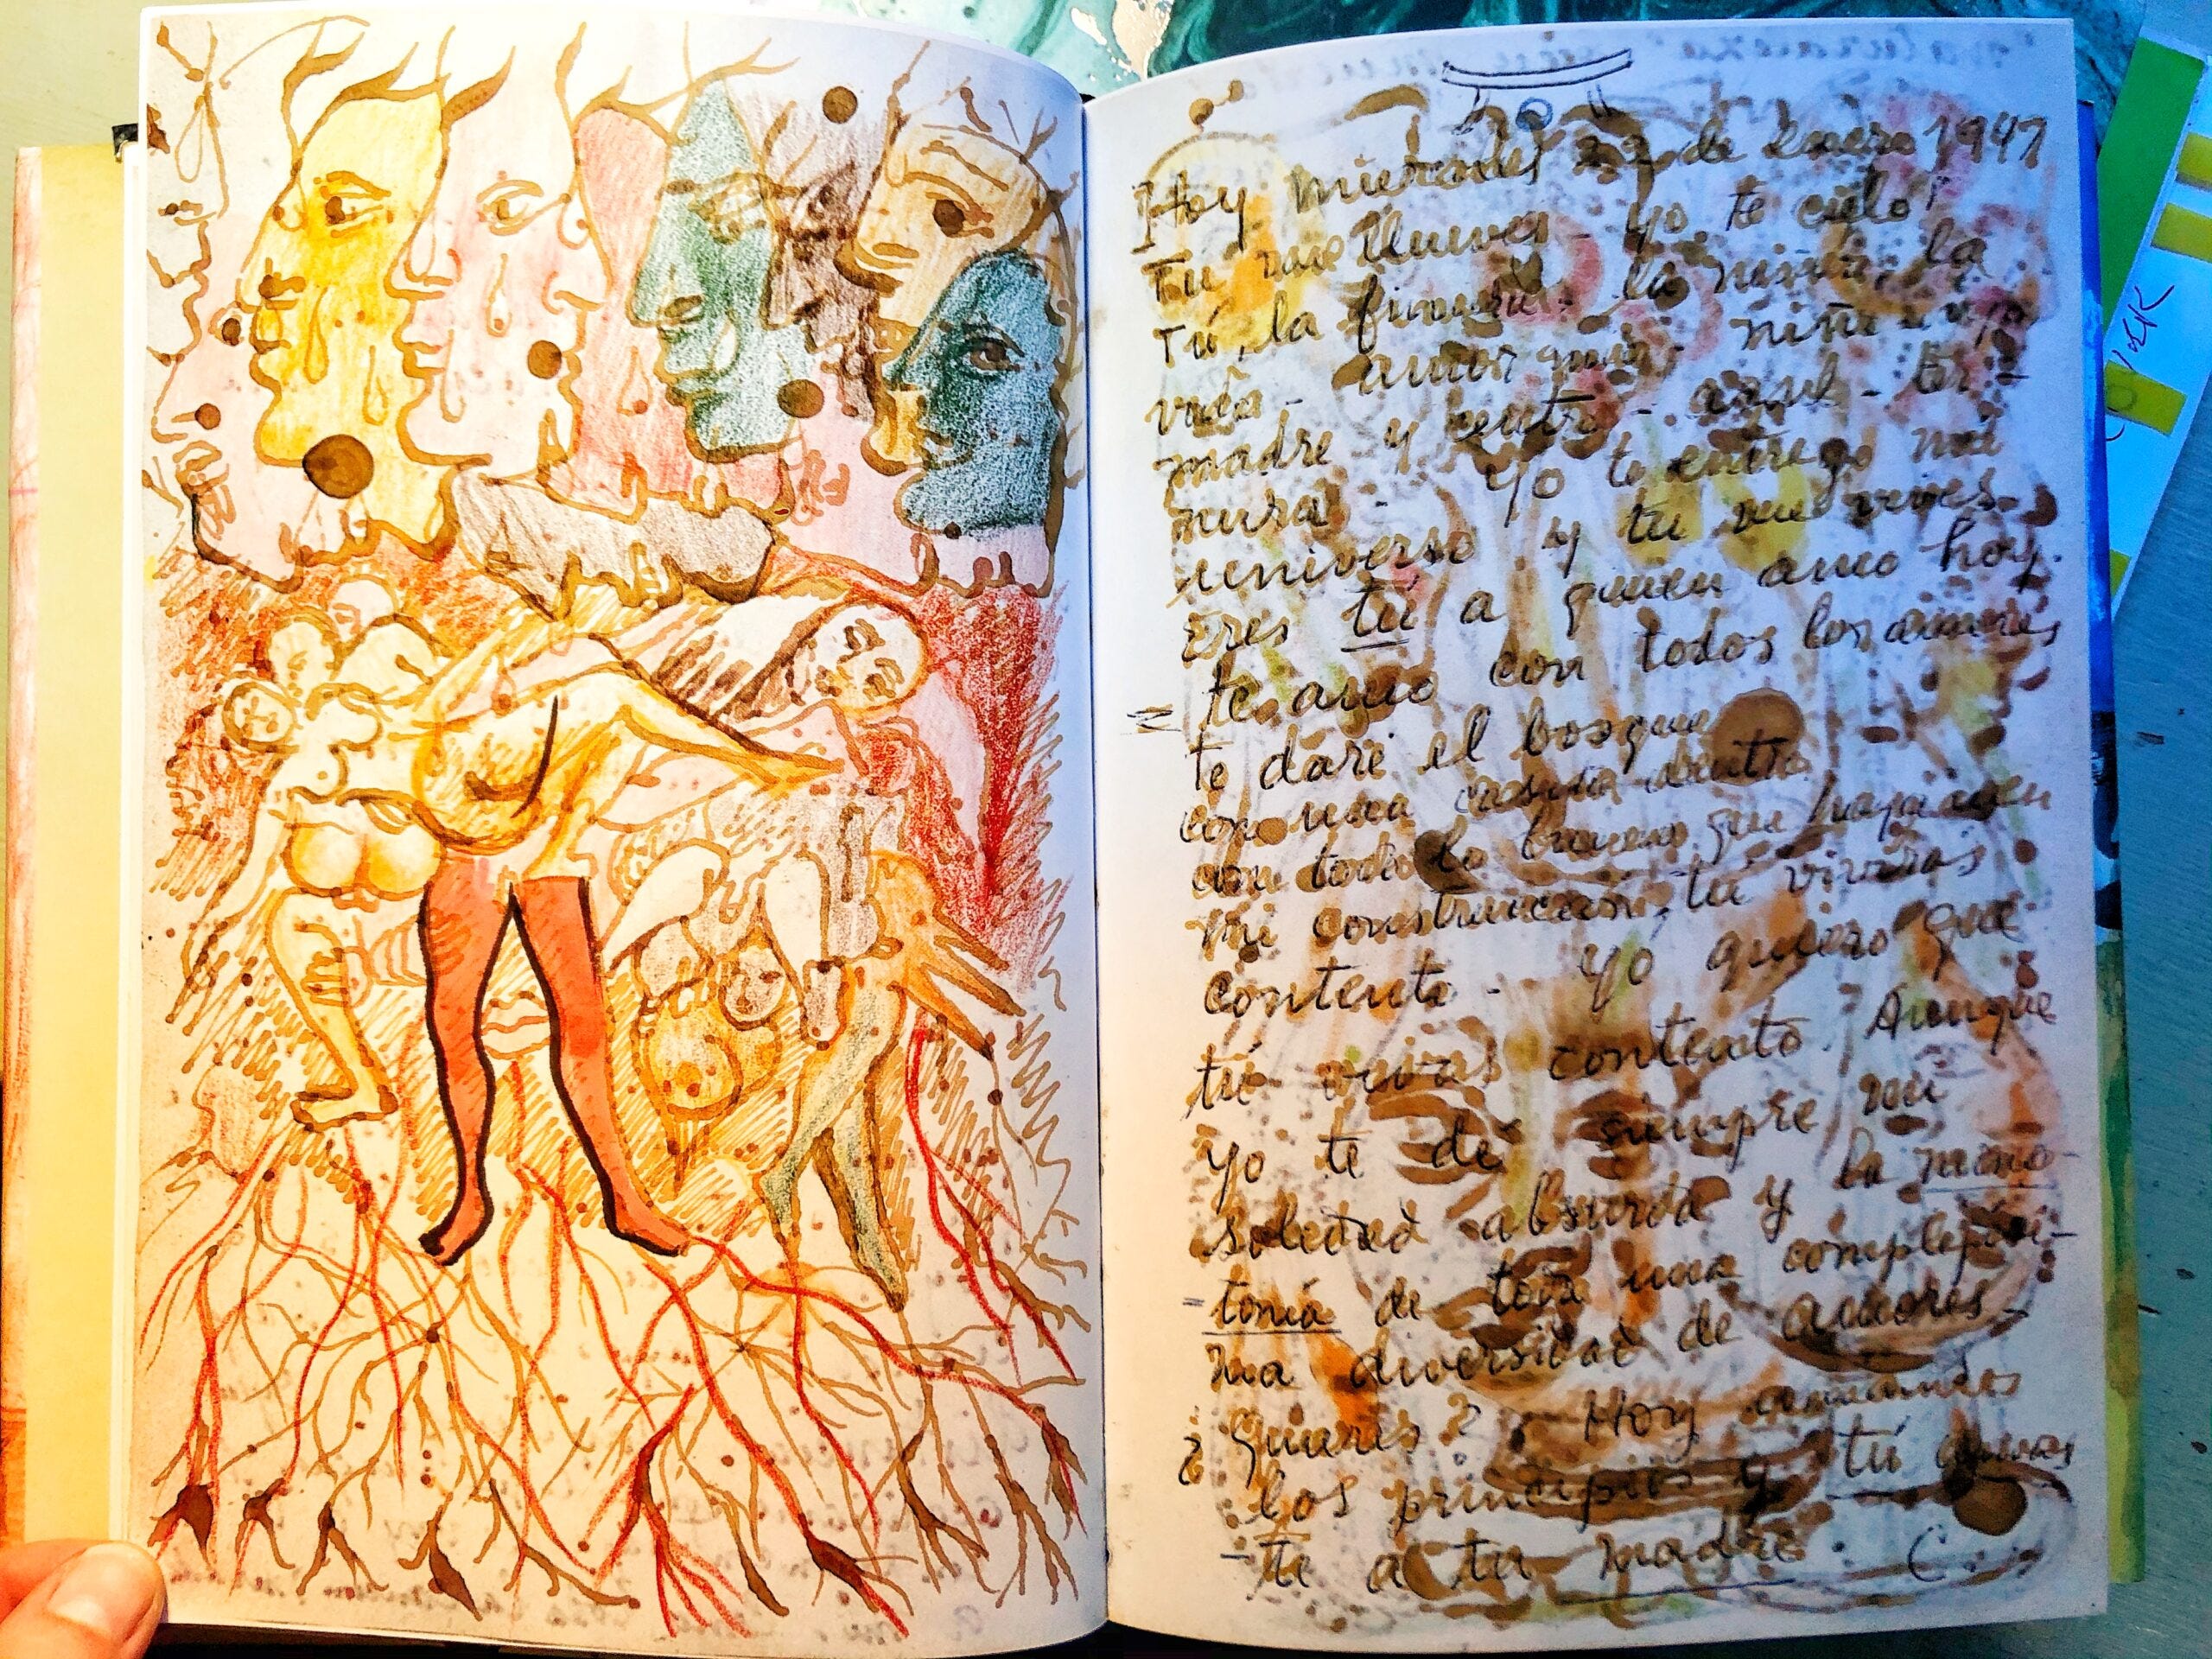 Hoy miercoles 22 de enero 1947
Tú me llueves - yo te cielo
Tú, la finura, la niñez, la
vida - amor mío - niño - viejo
madre y centro - azul - ter-
nura - Yo te entrego mi
universo y tú me vives.
Eres tú a quien amo hoy.
te amo con todos los amores
te daré el bosque
con una casita dentro
con todo lo bueno que haya en
mi construcción, tú vivirás
contento - Yo quiero que
tú vivas contento. Aunque
yo te dé siempre mi
soledad absurda y la mono-
tonía de toda una complejísi-
ma diversidad de amores -
¿Quieres? Hoy
los principios y tú amas
-te a tu madre. C.